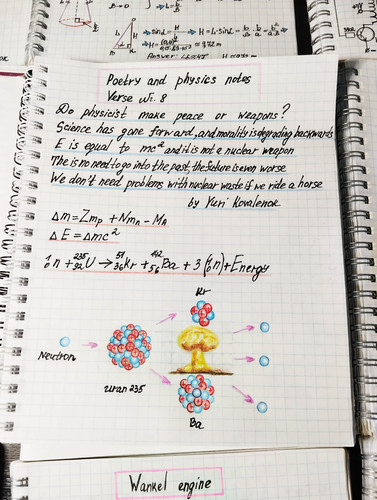 sinα = H/L ⇒ H = L·sinα =
Answer: ∠α=45° H = 
Poetry and physics notes
Verse №. 8
Do physicist make peace or weapons?
Science has gone forward, and morality is degrading backwards
E is equal to mc² and it is not a nuclear weapon
The is no need to go into the past, the future is even worse
We don't need problems with nuclear waste if we ride a horse
by Yuri Kovalenok
Δm=Zmp + Nmn - MA
ΔE=Δmc²
¹₀n + ²³⁵₉₂U → ⁹¹₃₆Kr + ¹⁴²₅₆Ba + 3(¹₀n) + Energy
Kr
Neutron
Uran 235
Ba
Wankel engine